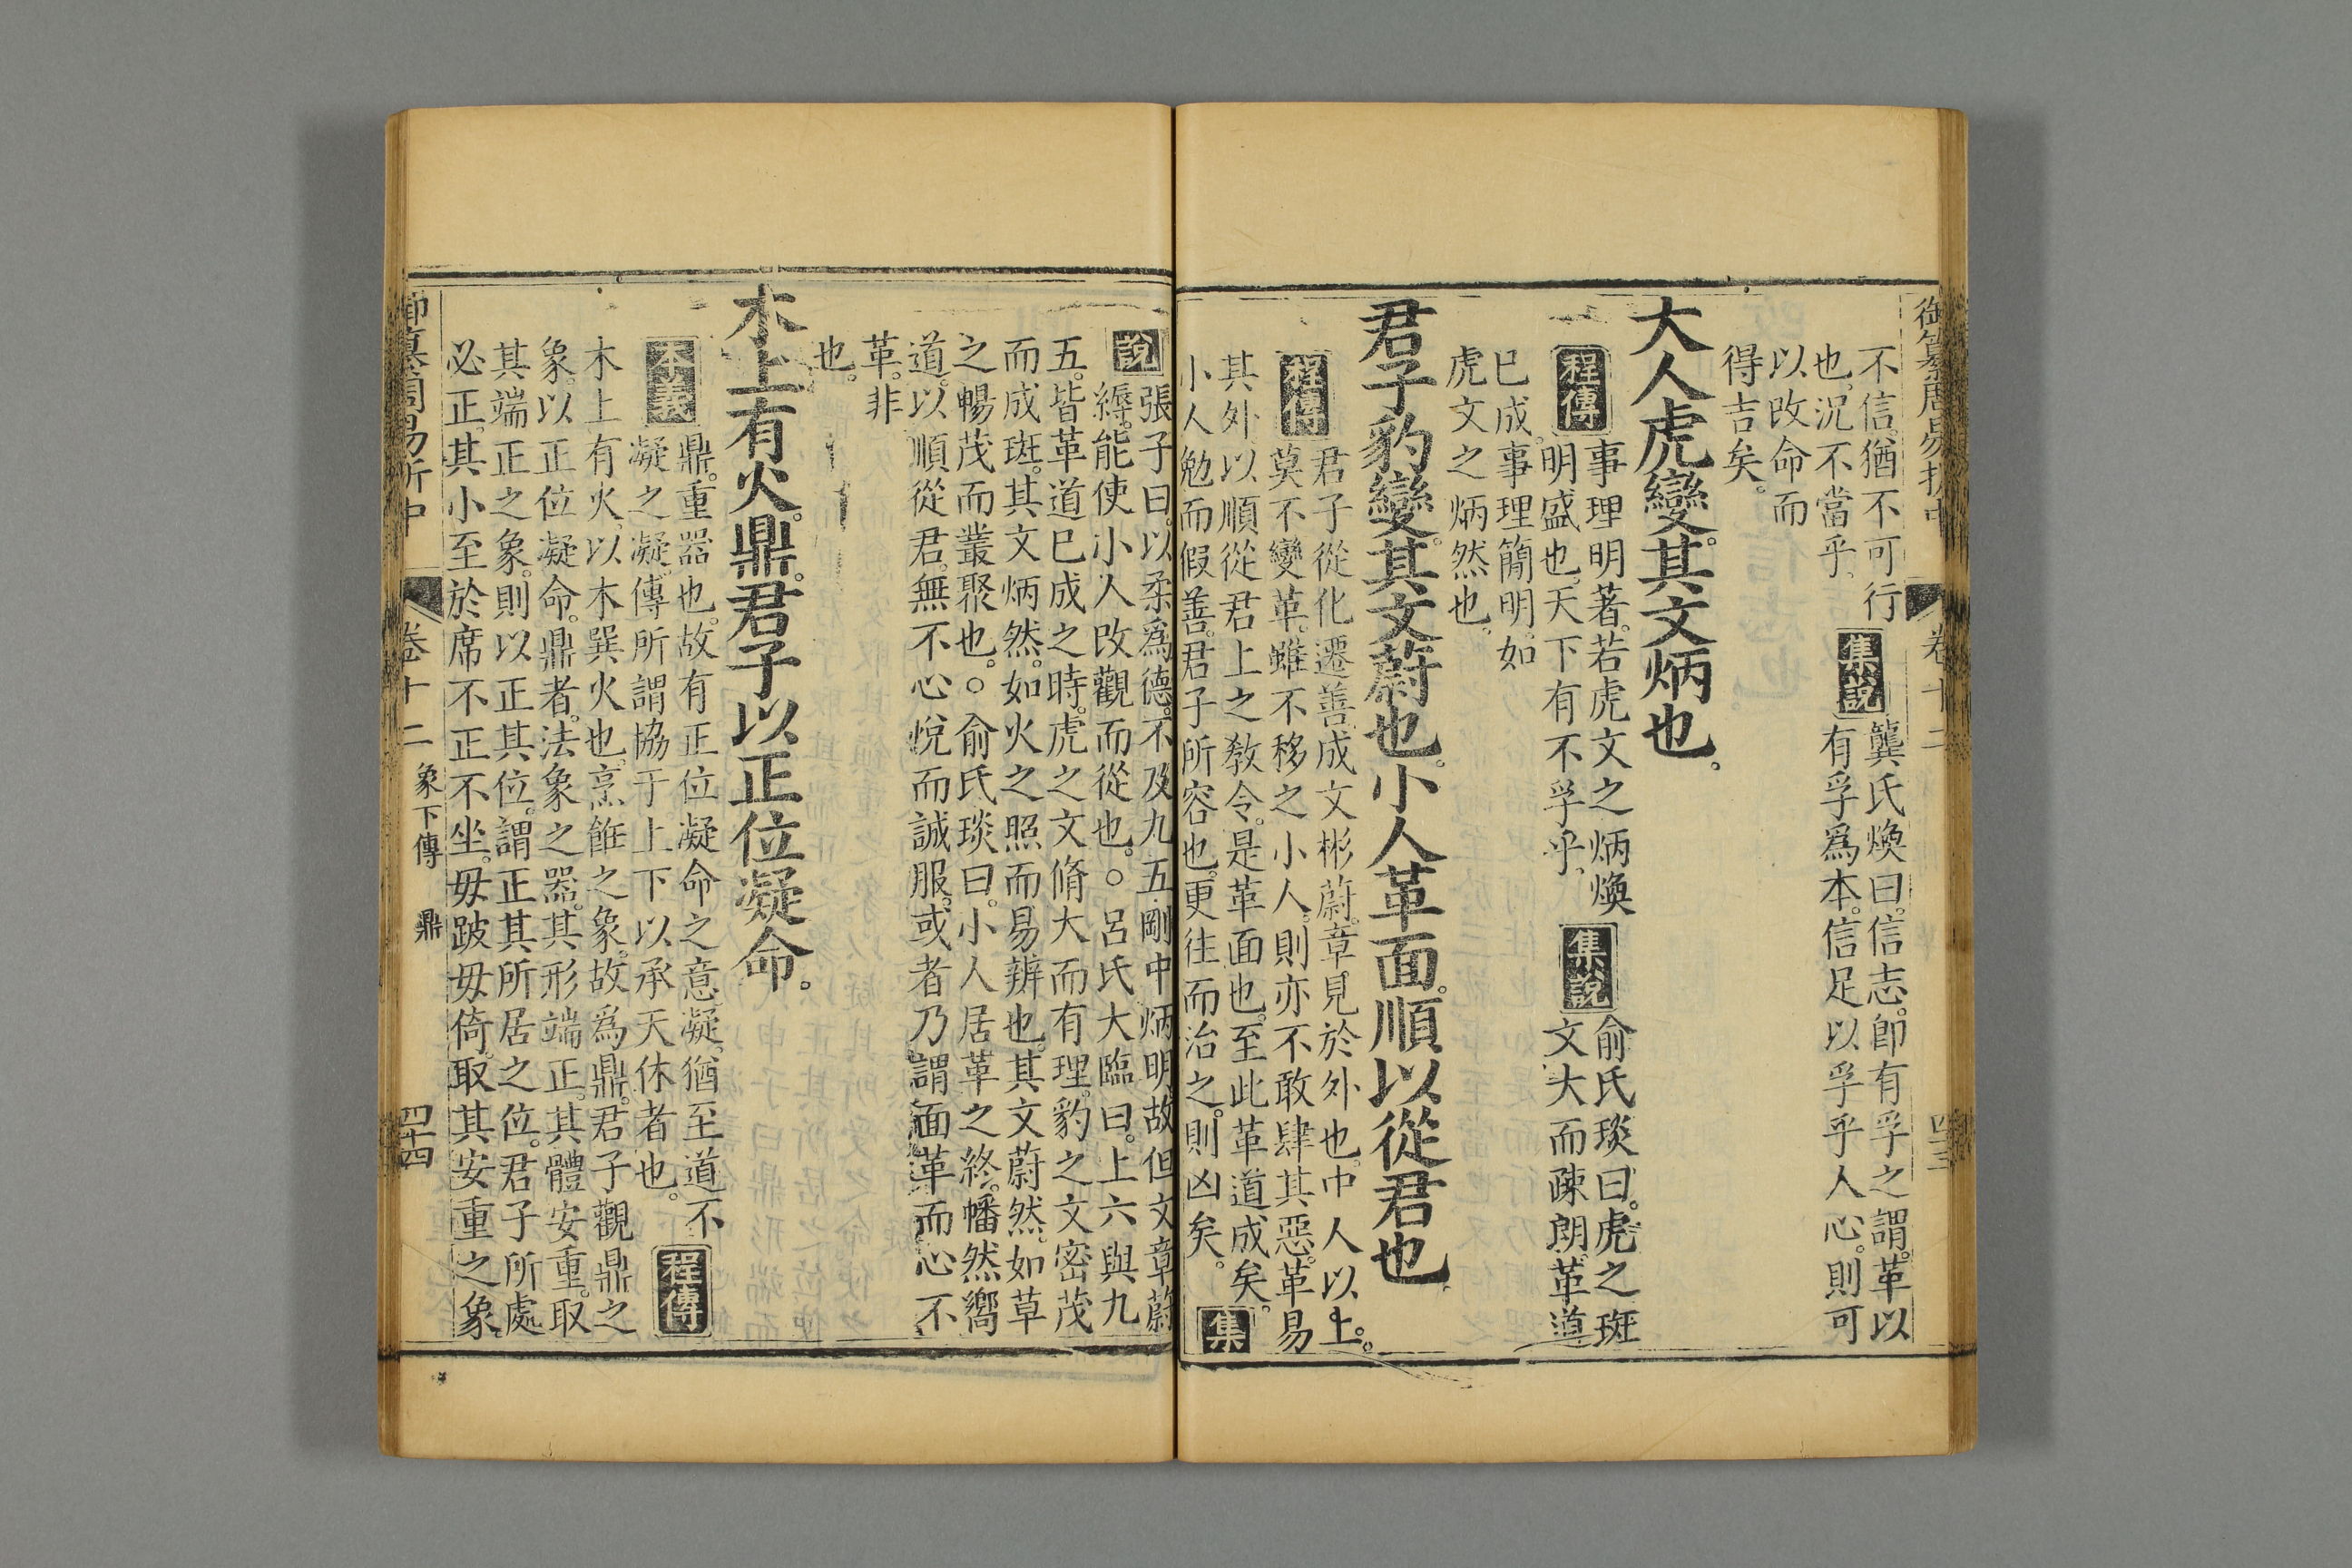 御纂周易折中 卷十二 四十三
不信猶不可行
也。況不當乎。
集說
龔氏煥曰。信志。卽有孚之謂。革以
有孚爲本。信足以孚乎人心。則可
以改命而
得吉矣。
大人虎變。其文炳也。
程傳
事理明著。若虎文之炳煥
明盛也。天下有不孚乎。
集說
俞氏琰曰。虎之斑
文大而疎朗。革道
已成。事理簡明。如
虎文之炳然也。
君子豹變。其文蔚也。小人革面。順以從君也。
程傳
君子從化遷善。成文彬蔚。章見於外也。中人以上。
莫不變革。雖不移之小人。則亦不敢肆其惡。革易
其外。以順從君上之敎令。是革面也。至此革道成矣。
小人勉而假善。君子所容也。更往而治之。則凶矣。
集
說
張子曰。以柔爲德。不及九五剛中炳明。故但文章蔚
縟。能使小人改觀而從也。○呂氏大臨曰。上六與九
五。皆革道已成之時。虎之文脩大而有理。豹之文密茂
而成斑。其文炳然。如火之照而易辨也。其文蔚然。如草
之暢茂而叢聚也。○俞氏琰曰。小人居革之終。幡然嚮
道。以順從君。無不心悅而誠服。或者乃謂面革而心不
革。非
也。
木上有火。鼎。君子以正位凝命。
本義
鼎。重器也。故有正位凝命之意。凝。猶至道不
凝之凝。傳所謂協于上下以承天休者也。
程傳
木上有火。以木巽火也。烹飪之象。故爲鼎。君子觀鼎之
象。以正位凝命。鼎者。法象之器。其形端正。其體安重。取
其端正之象。則以正其位。謂正其所居之位。君子所處
必正。其小至於席不正不坐。毋跛毋倚。取其安重之象。
御纂周易折中 卷十二 象下傳 鼎 四十四